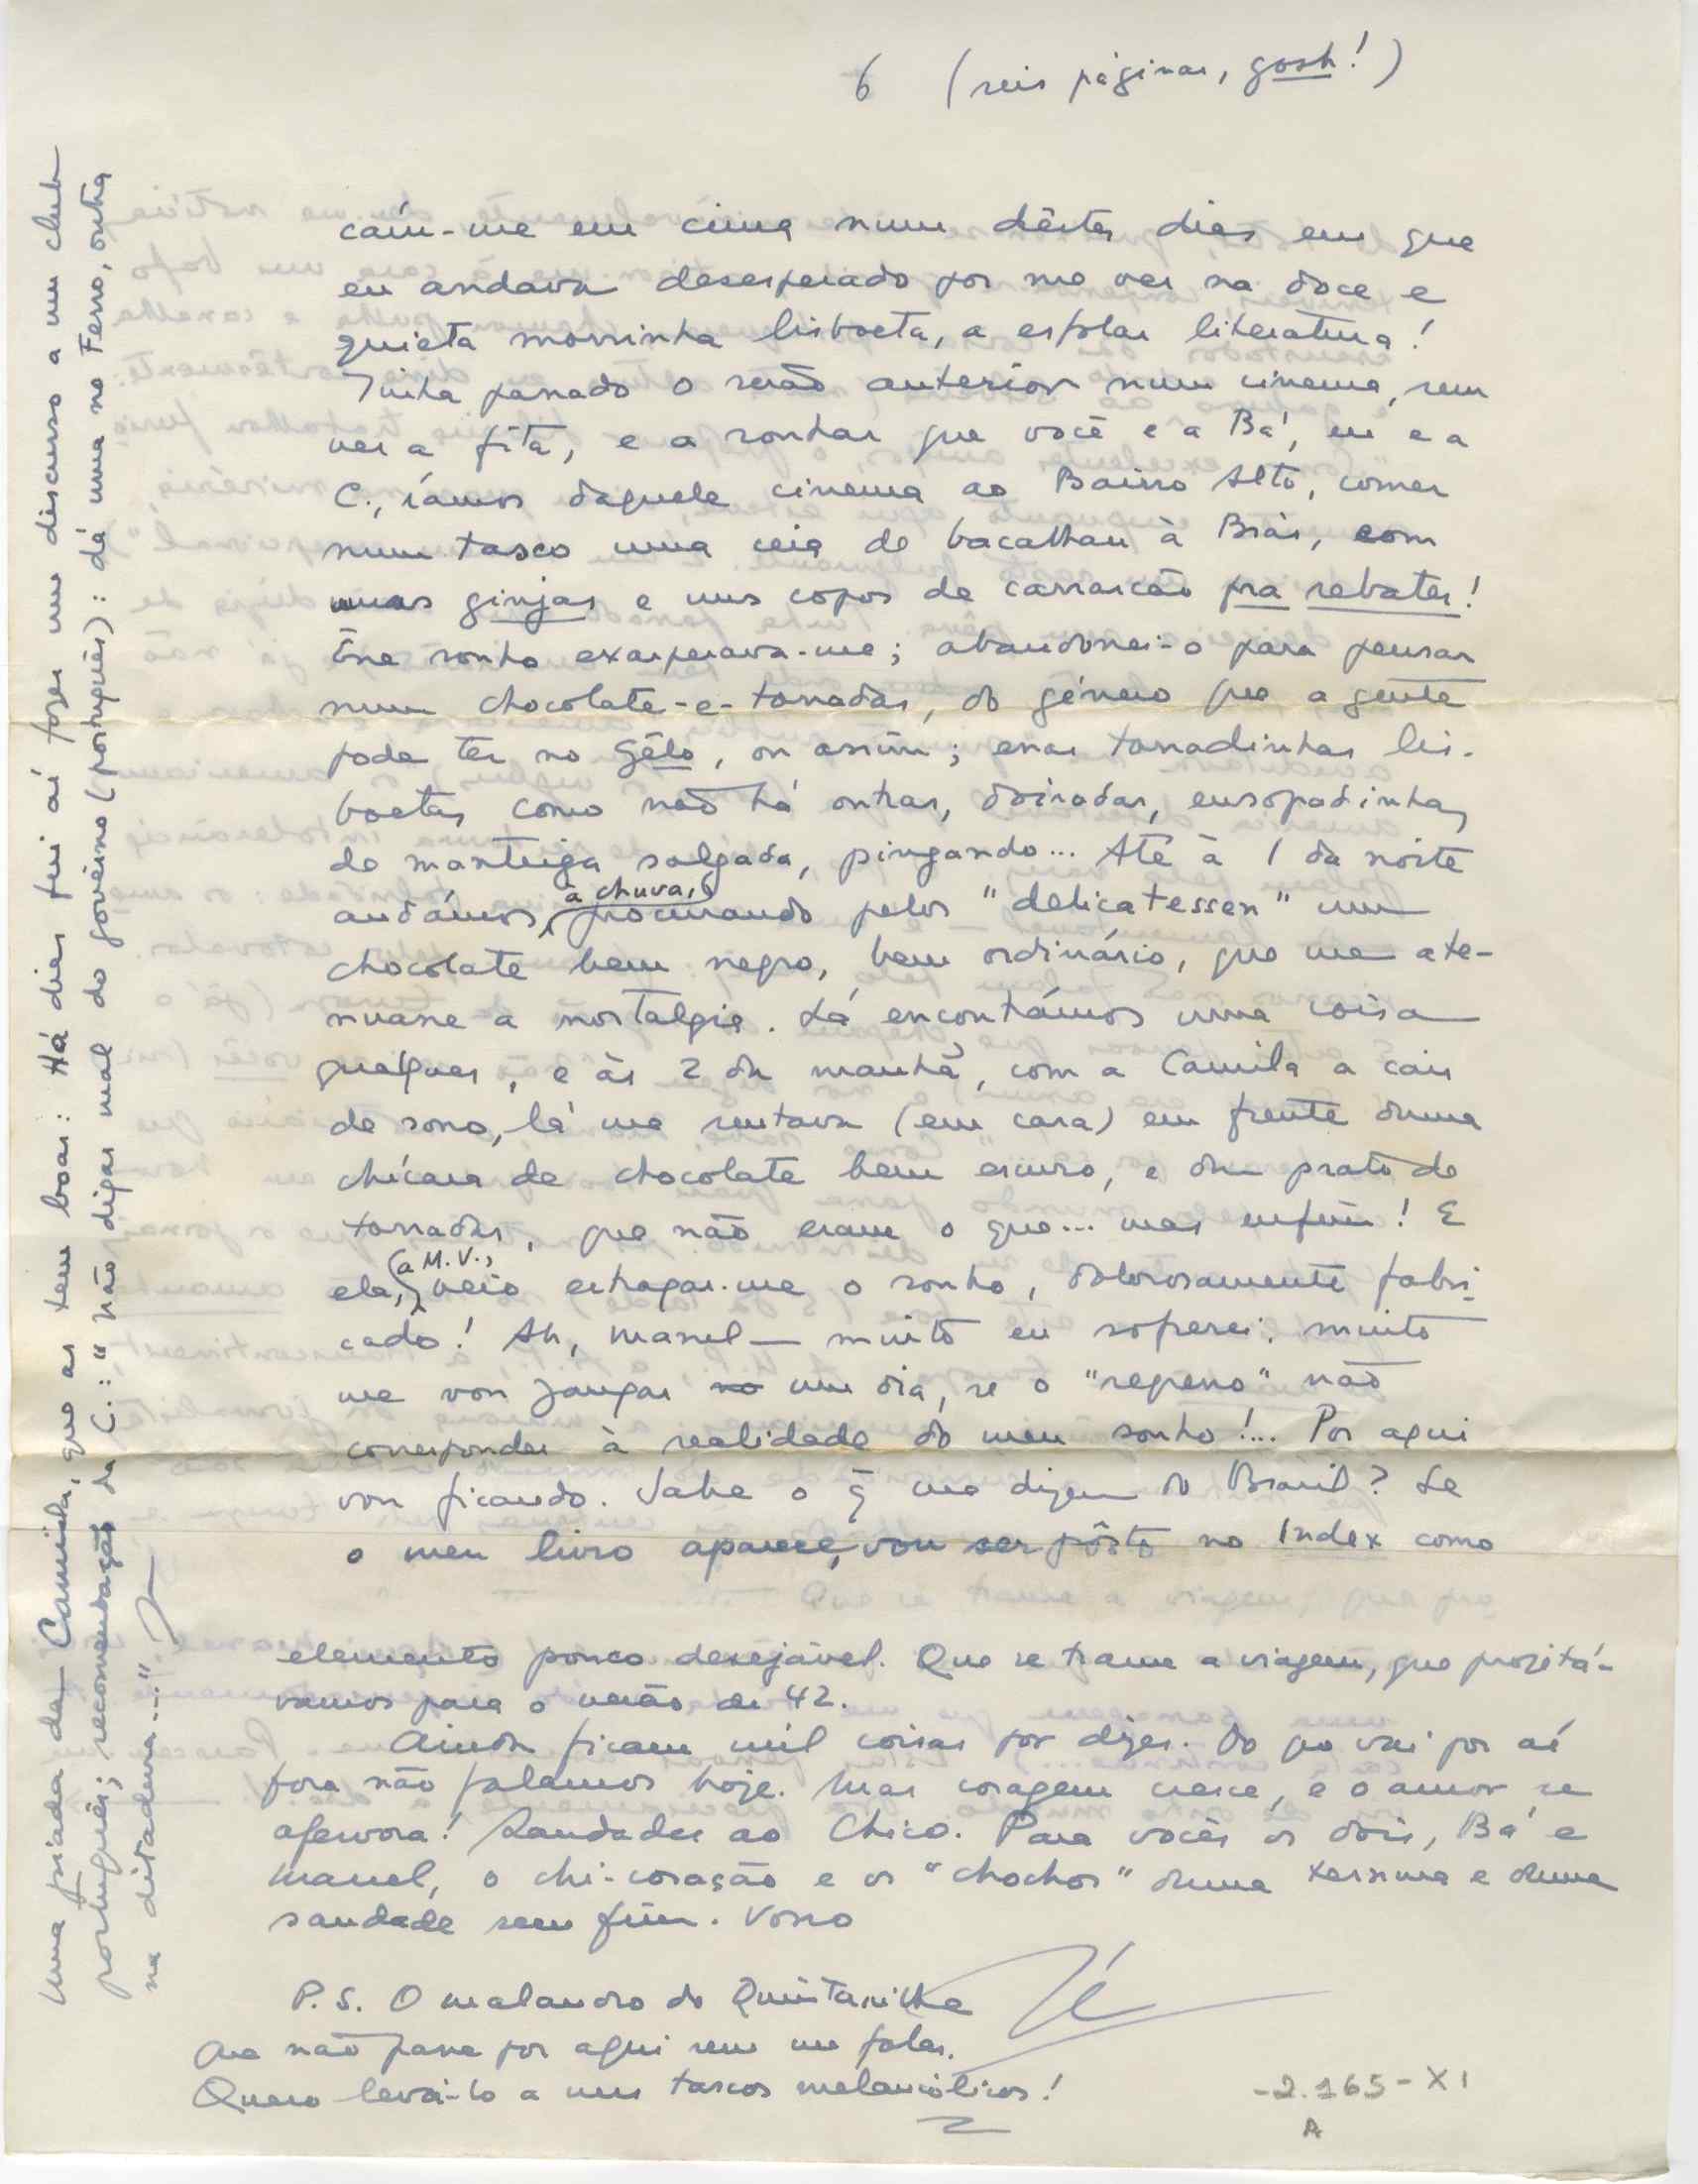 6 (seis páginas, gosh!)
caíu-me em cima num dêstes dias em que
eu andava desesperado por me ver na doce e
quieta morrinha lisboeta, a esfolar literatura!
Tinha passado o serão anterior num cinema, sem
ver a fita, e a sonhar que você e a Bá, eu e a
C., íamos daquele cinema ao Bairro Alto, comer
num tasco uma ceia de bacalhau à Brás, com
umas ginjas e uns copos de carrascão pra rebater!
Êsse sonho exasperava-me; abandonei-o para pensar
num chocolate-e-torradas, do género que a gente
pode ter no Gêlo, ou assim; essas torradinhas lis-
boetas como não há outras, doiradas, ensopadinhas
de manteiga salgada, pingando... Até à 1 da noite
andámos, (à chuva,) procurando pelos "delicatessen" um
chocolate bem negro, bem ordinário, que me ate-
nuasse a nostalgia. Lá encontrámos uma coisa
qualquer, e às 2 da manhã, com a Camila a cair
de sono, lá me sentava (em casa) em frente duma
chícara de chocolate bem escuro, e dum prato de
torradas, que não eram o que... mas enfim! E
ela, (a M.V.,) veio estragar-me o sonho, dolorosamente fabri-
cado! Ah, Manel — muito eu sofrerei, muito
me vou zangar no um dia, se o "regresso" não
corresponder à realidade do meu sonho!... Por aqui
vou ficando. Sabe o q̃ me dizem do Brasil? Se
o meu livro aparece, vou ser pôsto no Index como
elemento pouco desejável. Que se trame a viagem, que projetá-
vamos para o verão de 42.
Ainda ficam mil coisas por dizer. Do que vai por aí
fora não falamos hoje. Mas coragem cresce, e o amor se
afervora! Saudades ao Chico. Para vocês os dois, Bá e
Manel, o chi-coração e os "chochos" duma ternura e duma
saudade sem fim. Vosso
Zé
P.S. O malandro do Quintanilha
que não passe por aqui sem me falar.
Quero levá-lo a uns tascos melancólicos!
-2.165-XI
A
Uma piada da Camila, que as tem boas: Há dias fui aí fazer um discurso a um club
português; recomendação da C.: "não digas mal do govêrno (português): dá uma no Ferro, outra
na ditadura...."